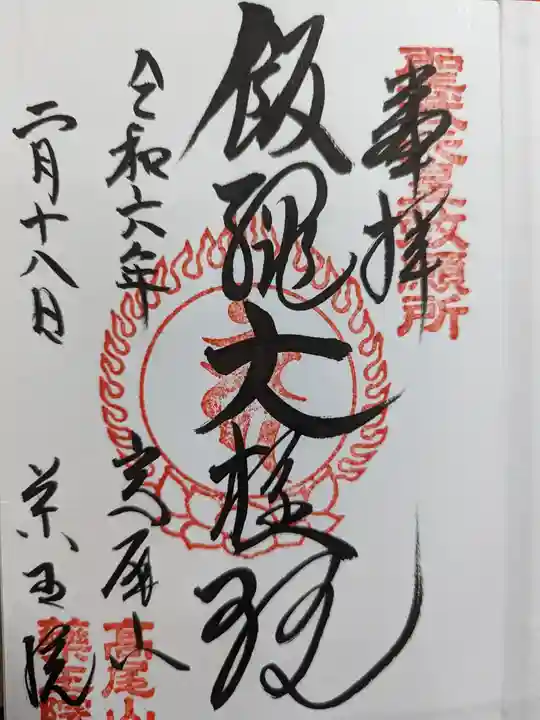 奉拝
聖武天皇勅願所
飯縄大権現
令和六年
二月十八日
高尾山
薬王院
高尾山
薬王院